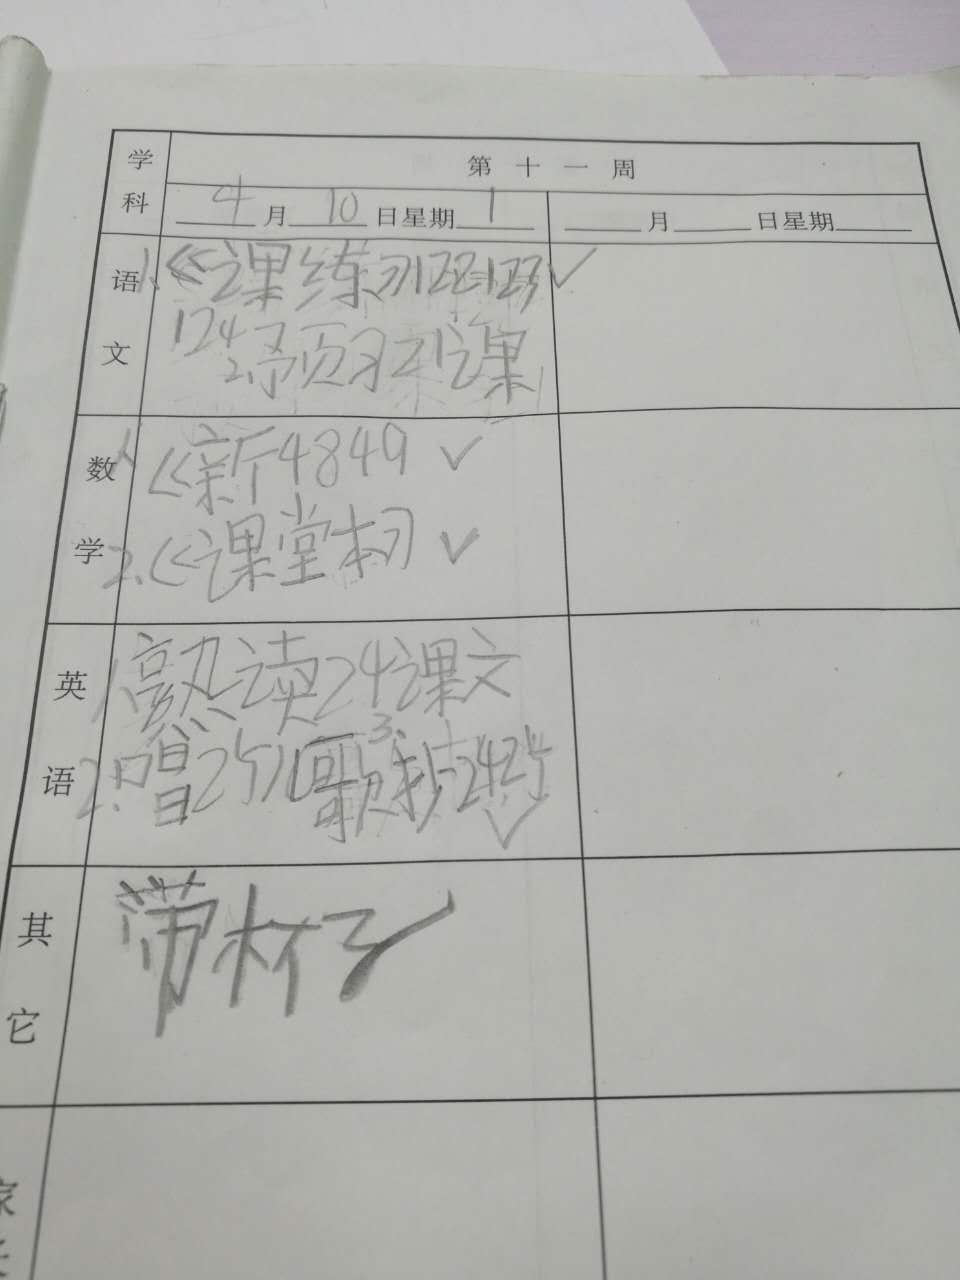 学科 第十一周
4月10日星期1 月 日星期
语文 1、《课练》122-123 ✓
124
2.预习21课
数学 1、《新 4849 ✓
2、《课堂本》 ✓
英语 1、熟读24课文
2.唱25儿歌 3、抄2425 ✓
其它 带杯子
家